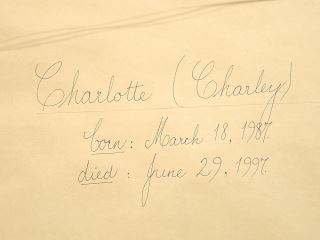 Charlotte (Charley)
born: March 18, 1987.
died: June 29, 1997.